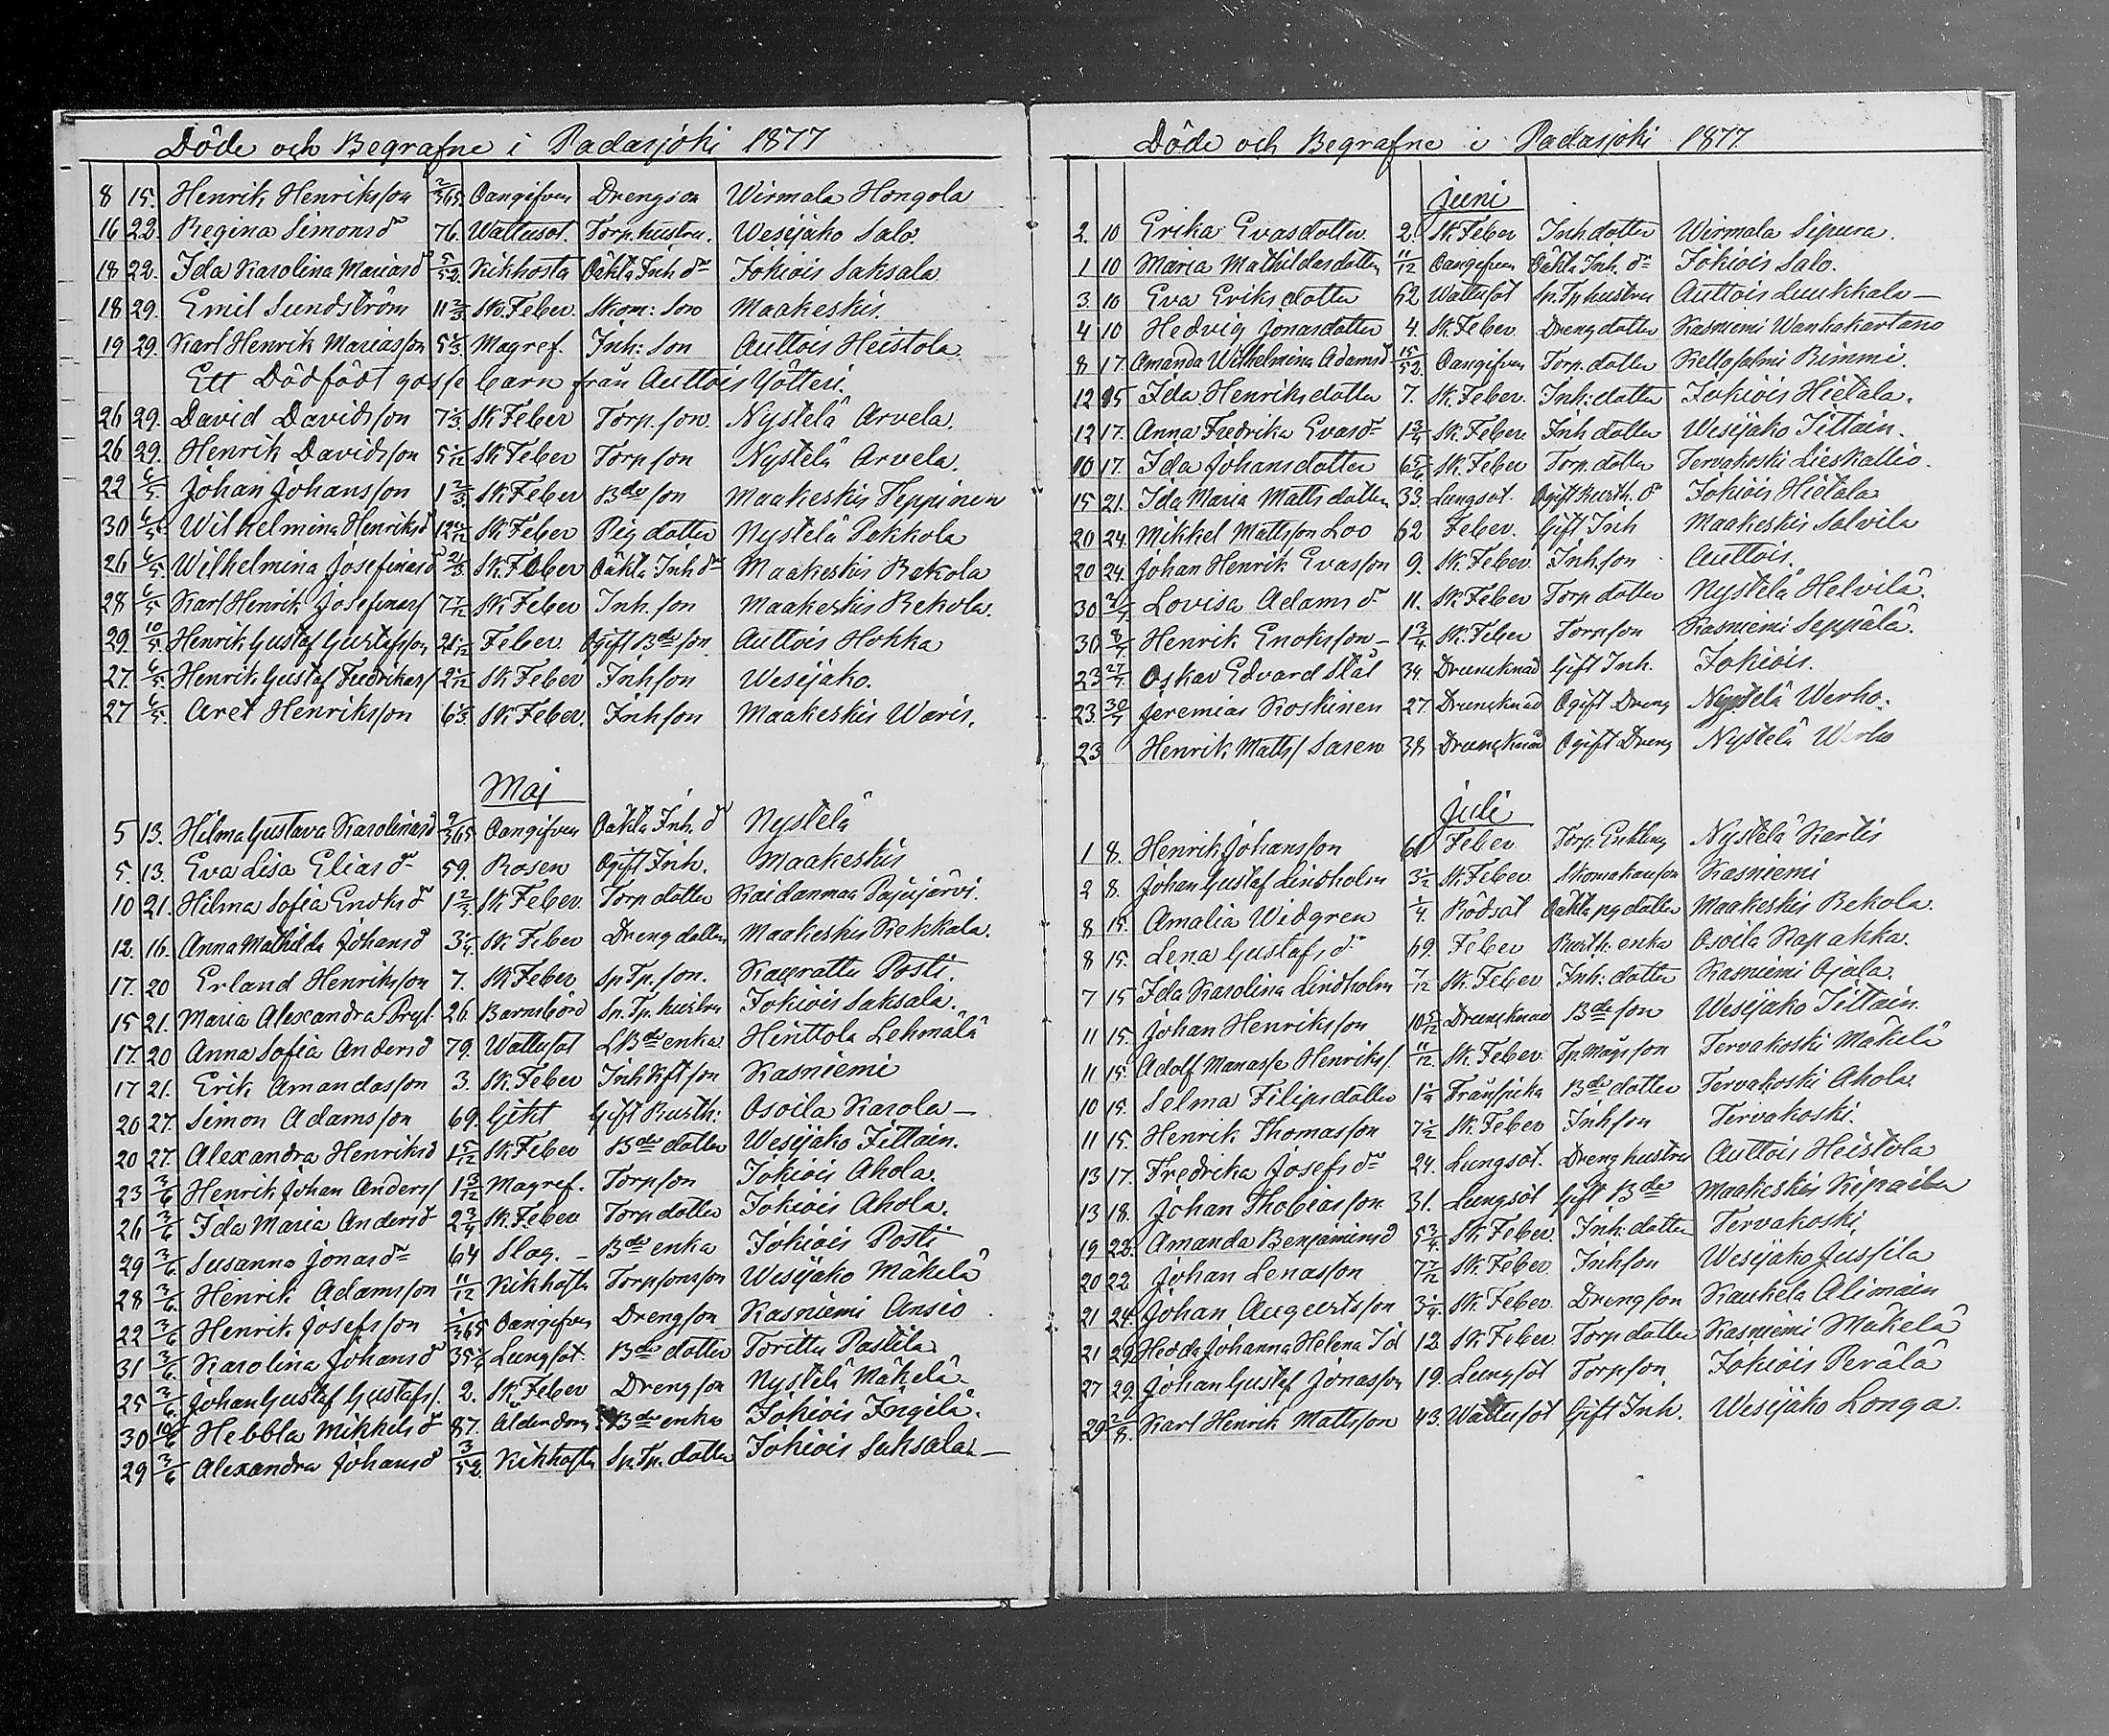 Döde och Begrafne i Padasjoki 1877
8 15. Henrik Henriksson 2/365 Oangifven Drengson Wirmala Hongola
16 22. Regina Simonsd 76. Wattusot. Torp. hustru. Wesijako Salo.
18 22. Ida Karolina Mariasd 5/52 Kikhosta Oäkta Inh dr Jokiois Saksala
18 29. Emil Sundström 11 2/3 Sk. Feber. Skom: Son Maakeskis.
19 29. Karl Henrik Mariasson 5 1/3 Magref. Inh: Son Auttois Heistola
Ett Dödfödt gosse barn från Auttois Yötteri.
26 29. David Davidsson 7 1/3 Sk Feber Torp. son. Nystelä Arvela.
26 29. Henrik Davidsson 5 1/12 Sk Feber Torpson Nystelä Arvela.
22 6/5. Johan Johansson 1 2/3 Sk Feber Bde son Maakeskis Teppinen
30 6/5 Wilhelmina Henriksd Sk Feber Pig dotter Nystelä Pakkola
26 6/5. Wilhelmina Josefinasd 2/3 Sk. Feber Oäkta Inh dr Maakeskis Rekola
28 6/5 Karl Henrik Josefinas/ 7 7/12 Sk Feber Inh. son Maakeskis Rekola.
29. 10/5. Henrik Gustaf Gustafsson Feber. Ogift Bde son Auttois Hokka
27. 6/5. Henrik Gustaf Fredrikas/ 2 1/12 Sk Feber Inhson Wesijako.
27 6/5. Aret Henriksson 6 1/3 Sk. Feber. Inhson Maakeskis Waris.
Maj
5 13. Hilma Gustava Karolinasd 9/365 Oangifven Oäkta Inh. d Nystelä
5. 13. Eva Lisa Eliasdr 59. Rosen Ogift Inh. Maakeskis
10 21. Hilma Sofia Enoksd 1 2/3 Sk Feber. Torp dotter Kaidanmaa Pajujärvi.
12. 16. Anna Mathilda Johansd 3 1/4 Sk Feber Dreng dotter Maakeskis Kekkala.
17. 20 Erland Henriksson 7. Sk Feber Sp Tp. son. Kauratta Posti.
15 21. Maria Alexandra Pryl 26. Barnsbörd Sp. Tp. hustru Jokiois Saksala.
17. 20 Anna Sofia Andersd 79. Wattusot LBde enka Hinttola Lehmälä
17 21. Erik Amandasson 3. Sk. Feber Inh Kft son Kasniemi
20 27. Simon Adamsson 69. Gikt Gift Rusth: Osoila Karola —
20 27. Alexandra Henriksd 1 5/12 Sk Feber Bde dotter Wesijako Tittain.
23 3/6 Henrik Johan Anders/ 1 3/12 Magref. Torpson Jokiois Ahola.
26 3/6 Ida Maria Andersd 2 3/4 Sk. Feber Torp dotter Jokiois Ahola.
29 3/6 Susanna Jonasdr 64 Slag. — Bde enka Jokiois Posti
28 3/6. Henrik Adamsson 11/12 Kikhosta Torpsonson Wesijako Mäkelä
22 3/6 Henrik Josefsson 1/365 Oangifven Drengson Kasniemi Ansio
31 3/6. Karolina Johansd Lungsot. Bde dotter Toritta Pastila
25 3/6 Johan Gustaf Gustafs/. 2. Sk. Feber Drengson Nystelä Mäkelä
30 10/6 Hebbla Mikkelsd 87. Alderdom Bde enka Jokiois Ingilä.
29 3/6 Alexandra Johansd 3/52 Kikhosta Sp. Tp. dotter Jokiois Saksala —
Döde och Begrafne i Padasjoki 1877.
juni
2. 10 Erika Evasdotter 2. Sk Feber Inh dotter Wirmala Sipura.
1 10 Maria Mathildasdotter 11/12 Oangifven Oäkta Inh. dr Jokiois Salo.
3. 10 Eva Eriksdotter 62 Wattusot Sp. Tp hustru Auttois Luukkala —
4 10 Hedvig Jonasdotter 4. Sk. Feber. Drengdotter Kasniemi Wanhakartano
8 17. Amanda Wilhelmina Adamsd 15/52. Oangifven Torp. dotter Kellosalmi Rimmi.
12 15 Ida Henriksdotter 7. Sk. Feber. Inh: dotter Jokiois Hietala.
12 17. Anna Fredrika Evasdr 1 3/4 Sk. Feber. Inh dotter Wesijako Tittain.
10 17. Ida Johansdotter 6 5/6 Sk. Feber Torp. dotter Tervakoski Lieskallio.
15 21. Ida Maria Mattsdotter 33. Lungsot. Ogift Rusth. dr Jokiois Hietala
20 24. Mikkel Mattsson Loo 62 Feber. Gift Inh Maakeskis Salvila
20 24. Johan Henrik Evasson 9. Sk. Feber. Inh. son Auttois.
30 Lovisa Adamsdr 11. Sk. Feber Torp dotter Nystelä Helvilä.
30 8/7. Henrik Enoksson — 1 3/4. Sk. Feber Torpson Kasniemi Seppälä.
23 27/7. Oskar Edvard Stål 34. Drunknad Gift Inh. Jokiois.
23. 30/7 Jeremias Koskinen 27. Drunknad Ogift Dreng Nystelä Werho.
23 Henrik Matts/ Saren 38 Drunknad Ogift Dreng Nystelä Werho
juli
1 8. Henrik Johansson 61 Feber Torp. Enkling Nystelä Kartis
2 8. Johan Gustaf Lindholm 3 1/2 Sk. Feber Skomakarson Kasniemi
8 15. Amalia Widgren 1/4. Rödsot Oäkta pg dotter Maakeskis Rekola.
8 15. Lena Gustafsdr 69. Feber Rusth. enka Osoila Kapakka.
7 15 Ida Karolina Lindholm 7/12 Sk. Feber Inh: dotter Kasniemi Ojala.
11 15. Johan Henriksson 10 5/12 Drunknad Bde son Wesijako Tittain.
11 15. Adolf Manasse Henriks/. 11/12. Sk. Feber. Tp Mågsson Tervakoski Mäkelä
10 15. Selma Filipsdotter 1 1/4 Bde dotter Tervakoski Ahola.
11 15. Henrik Thomasson 7 1/2 Sk. Feber Inhson Tervakoski.
13 17. Fredrika Josefsdr 24. Lungsot. Dreng hustru Auttois Heistola
13 18. Johan Thobiasson 31. Lungsot Gift Bde Maakeskis
19 22. Amanda Benjaminsd 5 3/4. Sk. Feber. Inh: dotter Tervakoski
20 22 Johan Lenasson 7 7/12 Sk. Feber. Inhson Wesijako Jussila
21 24. Johan Augustsson 3 1/4. Sk. Feber. Drengson Kaukela Alimain
21 29. Hedda Johanna Helena Isl 12 Sk Feber. Torp dotter Kasniemi Mäkelä
27 29. Johan Gustaf Jonasson 19. Lungsot Torpson Jokiois Perälä
29 Karl Henrik Mattsson 43. Wattusot Gift Inh. Wesijako Longa.